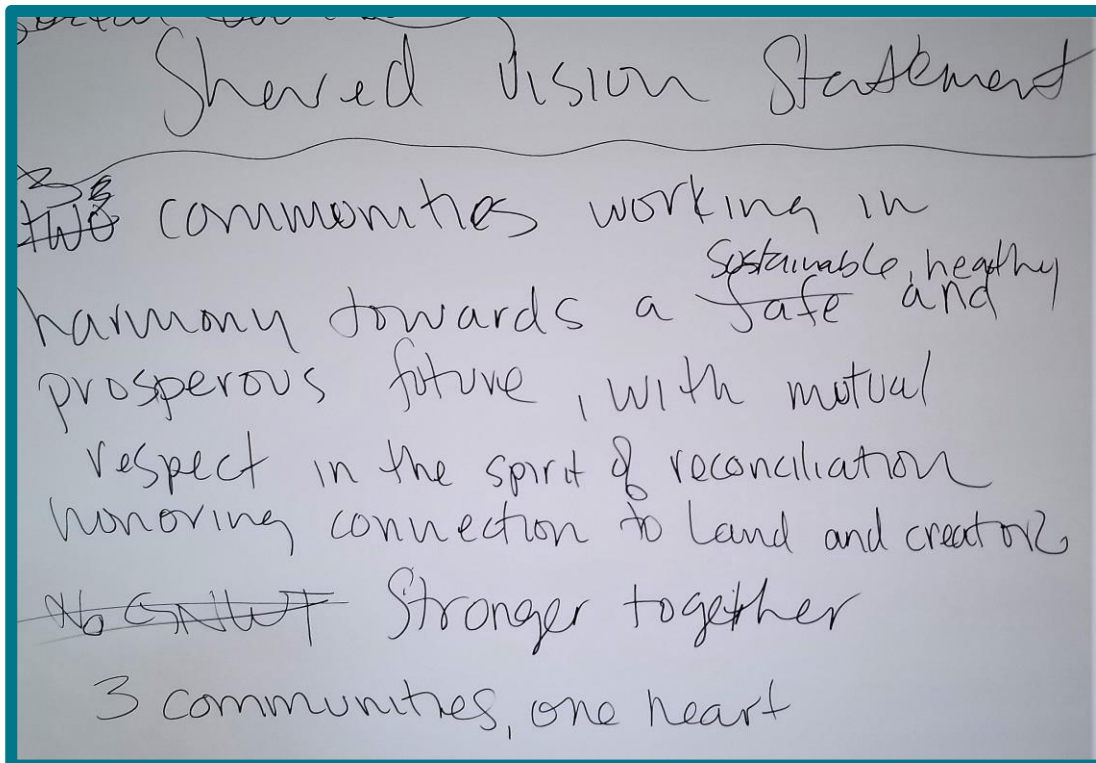 Shared Vision Statement
3
two communities working in
sustainable, healthy
harmony towards a safe and
prosperous future, with mutual
respect in the spirit of reconciliation
honoring connection to Land and creator
No GNWT Stronger together
3 communities, one heart